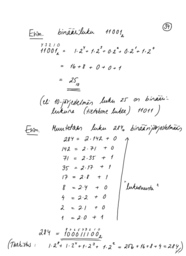 34
Esim. binääriluku 11001₂
4 3 2 1 0
11001₂ = 1·2⁴ + 1·2³ + 0·2² + 0·2¹ + 1·2⁰
= 16 + 8 + 0 + 0 + 1
= 25₁₀
(eli 10-järjestelmän luku 25 on binääri-
lukuna 11011)
Esim Muutetaan luku 284₁₀ binäärijärjestelmään
284 = 2·142 + 0
142 = 2·71 + 0
71 = 2·35 + 1
35 = 2·17 + 1
17 = 2·8 + 1
8 = 2·4 + 0
4 = 2·2 + 0
2 = 2·1 + 0
1 = 2·0 + 1
"lukusuunta"
8 7 6 5 4 3 2 1 0
284 = 100011100₂
(Tarkistus: 1·2⁸ + 1·2⁴ + 1·2³ + 1·2² = 256 + 16 + 8 + 4 = 284)